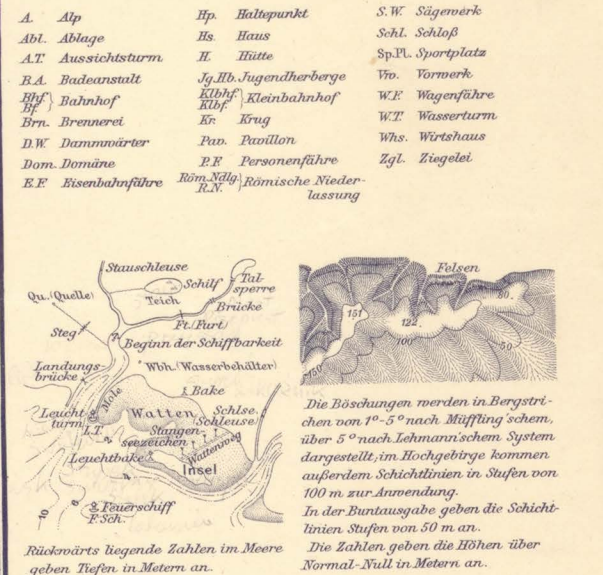 A. Alp
Abl. Ablage
A.T. Aussichtsturm
B.A. Badeanstalt
Bhf. Bf. } Bahnhof
Brn. Brennerei
D.W. Dammwärter
Dom. Domäne
E.F. Eisenbahnfähre
Hp. Haltepunkt
Hs. Haus
H. Hütte
Jg.Hb. Jugendherberge
Klbhf. Klbf. } Kleinbahnhof
Kr. Krug
Pav. Pavillon
P.F. Personenfähre
Röm.Ndlg. R.N. } Römische Nieder-
lassung
S.W. Sägewerk
Schl. Schloß
Sp.Pl. Sportplatz
Vw. Vorwerk
W.F. Wagenfähre
W.T. Wasserturm
Whs. Wirtshaus
Zgl. Ziegelei
Stauschleuse
Schilf
Tal-
sperre
Teich
Qu. (Quelle)
Brücke
Ft. (Furt)
Steg
Beginn der Schiffbarkeit
Wbh. (Wasserbehälter)
Landungs-
brücke
Bake
Mole
Leucht-
turm
L.T.
Watten
Schlse.
(Schleuse)
Stangen-
seezeichen
Wattenweg
Leuchtbake
Insel
2
4
6
10
Feuerschiff
F.Sch.
Rückwärts liegende Zahlen im Meere
geben Tiefen in Metern an.
Felsen
151
122.
100
80.
50
150
Die Böschungen werden in Bergstri-
chen von 1°-5° nach Müffling'schem,
über 5° nach Lehmann'schem System
dargestellt, im Hochgebirge kommen
außerdem Schichtlinien in Stufen von
100 m zur Anwendung.
In der Buntausgabe geben die Schicht-
linien Stufen von 50 m an.
Die Zahlen geben die Höhen über
Normal-Null in Metern an.